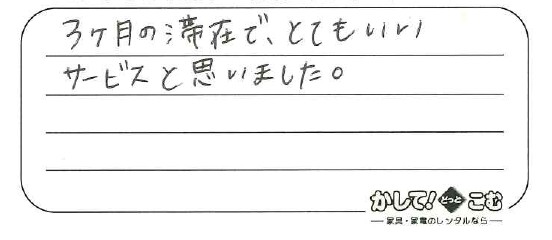 3ケ月の滞在で、とてもいい
サービスと思いました。
かして!どっとこむ
家具・家電のレンタルなら